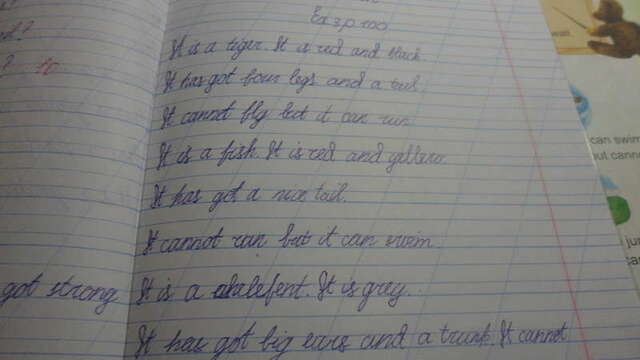 Ex 3, p. 100
It is a tiger. It a red and black.
It has got four legs and a tail.
It cannot fly but it can run.
It is a fish. It is red and yellow.
It has got a nice tail.
It cannot run but it can swim.
got strong
It is a alefent. It is grey.
It has got big ears and a trunk. It cannot
can swim
but cann